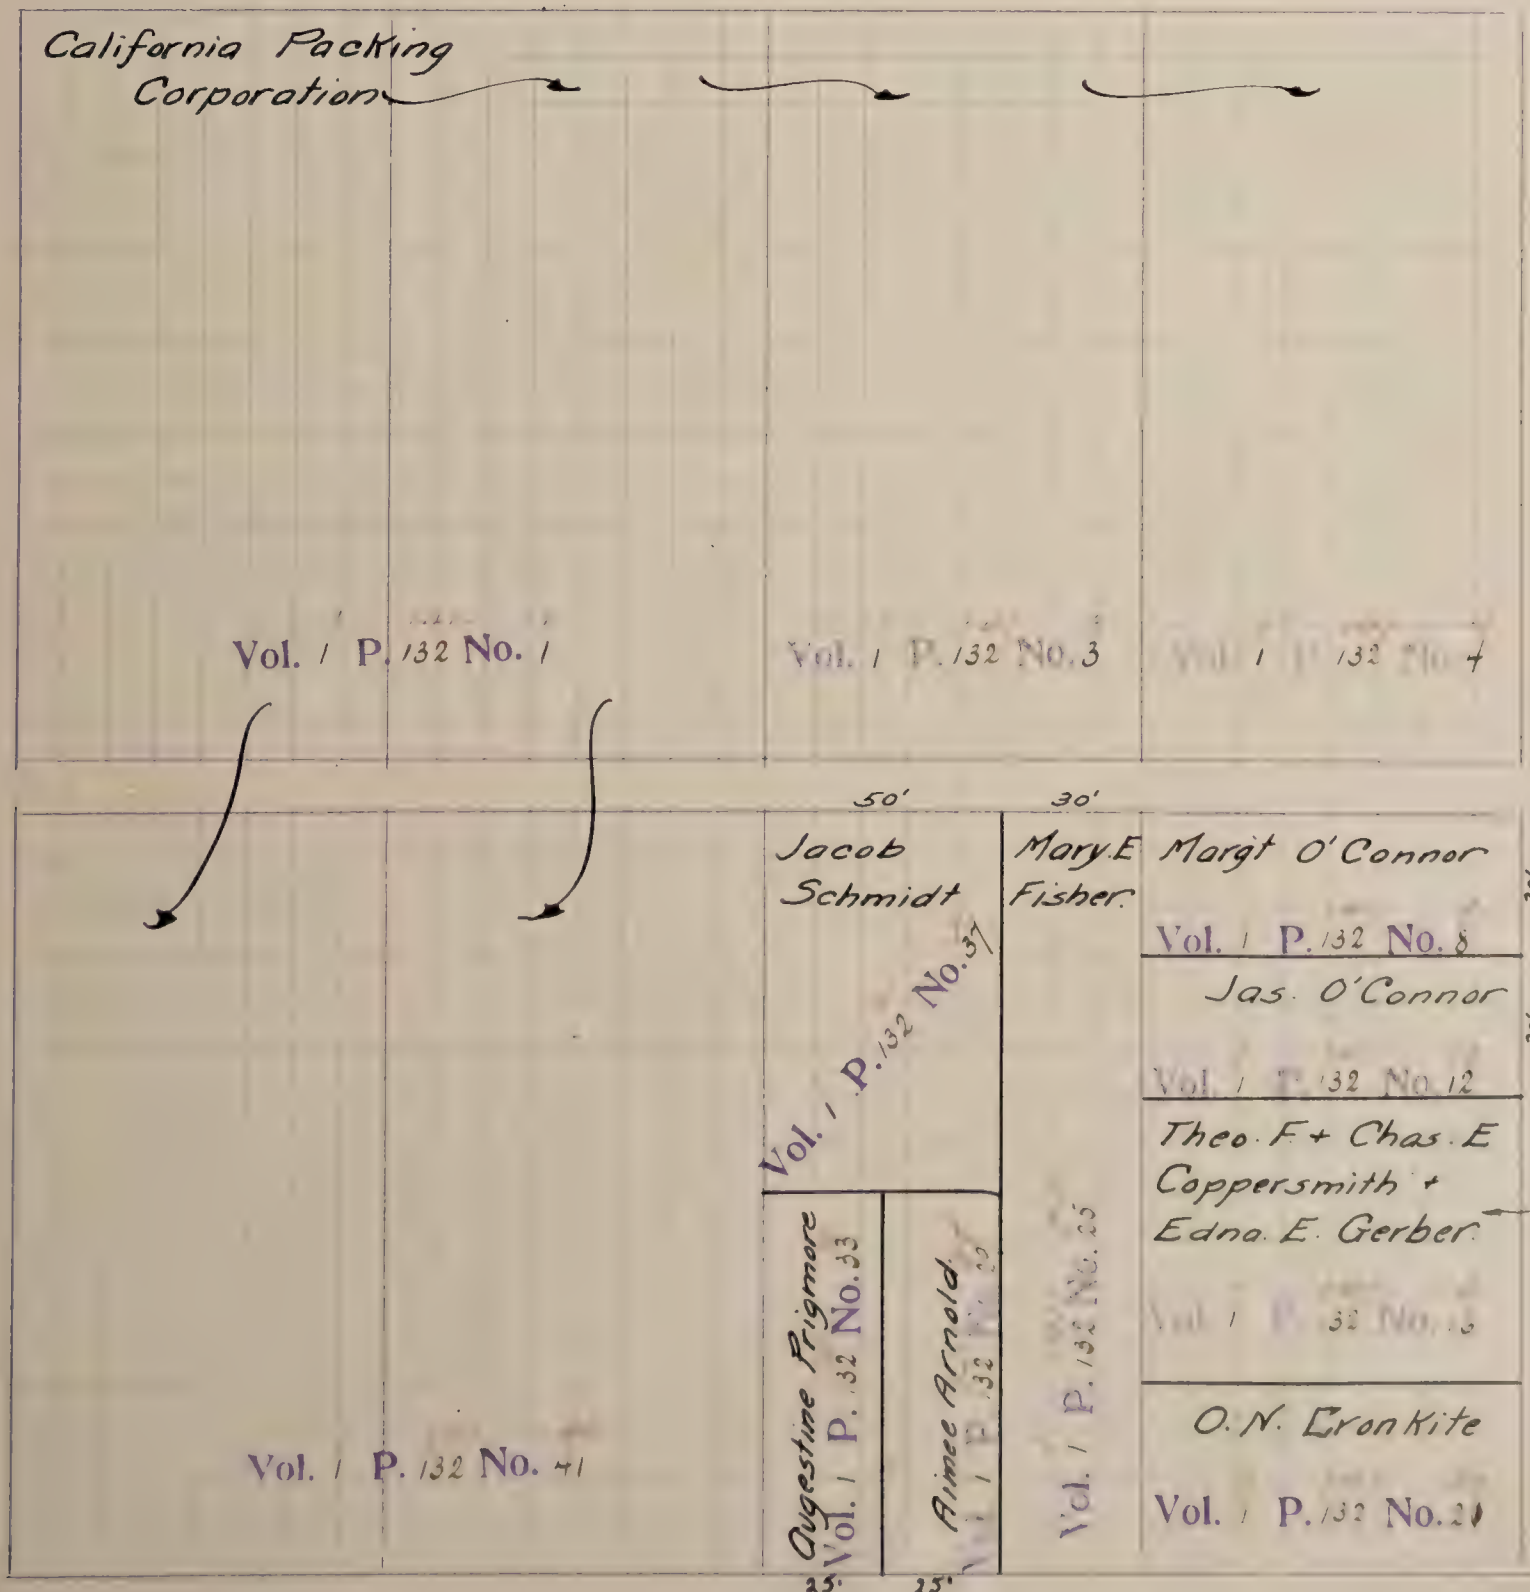 California Packing
Corporation
Vol. 1 P. 132 No. 1
Vol. 1 P. 132 No. 3
Vol. 1 P. 132 No. 4
50'
30'
Jacob
Schmidt
Vol. 1 P. 132 No. 37
Mary. E
Fisher.
Vol. 1 P. 132 No. 25
Margt O'Connor
Vol. 1 P. 132 No. 8
Jas. O'Connor
Vol. 1 P. 132 No. 12
Theo. F. + Chas. E
Coppersmith +
Edna. E. Gerber.
Vol. 1 P. 132 No.
O. N. Cronkite
Vol. 1 P. 132 No. 21
Augestine Prigmore
Vol. 1 P. 132 No. 33
25'
Aimee Arnold.
Vol. 1 P. 132 No.
25'
Vol. 1 P. 132 No. 41